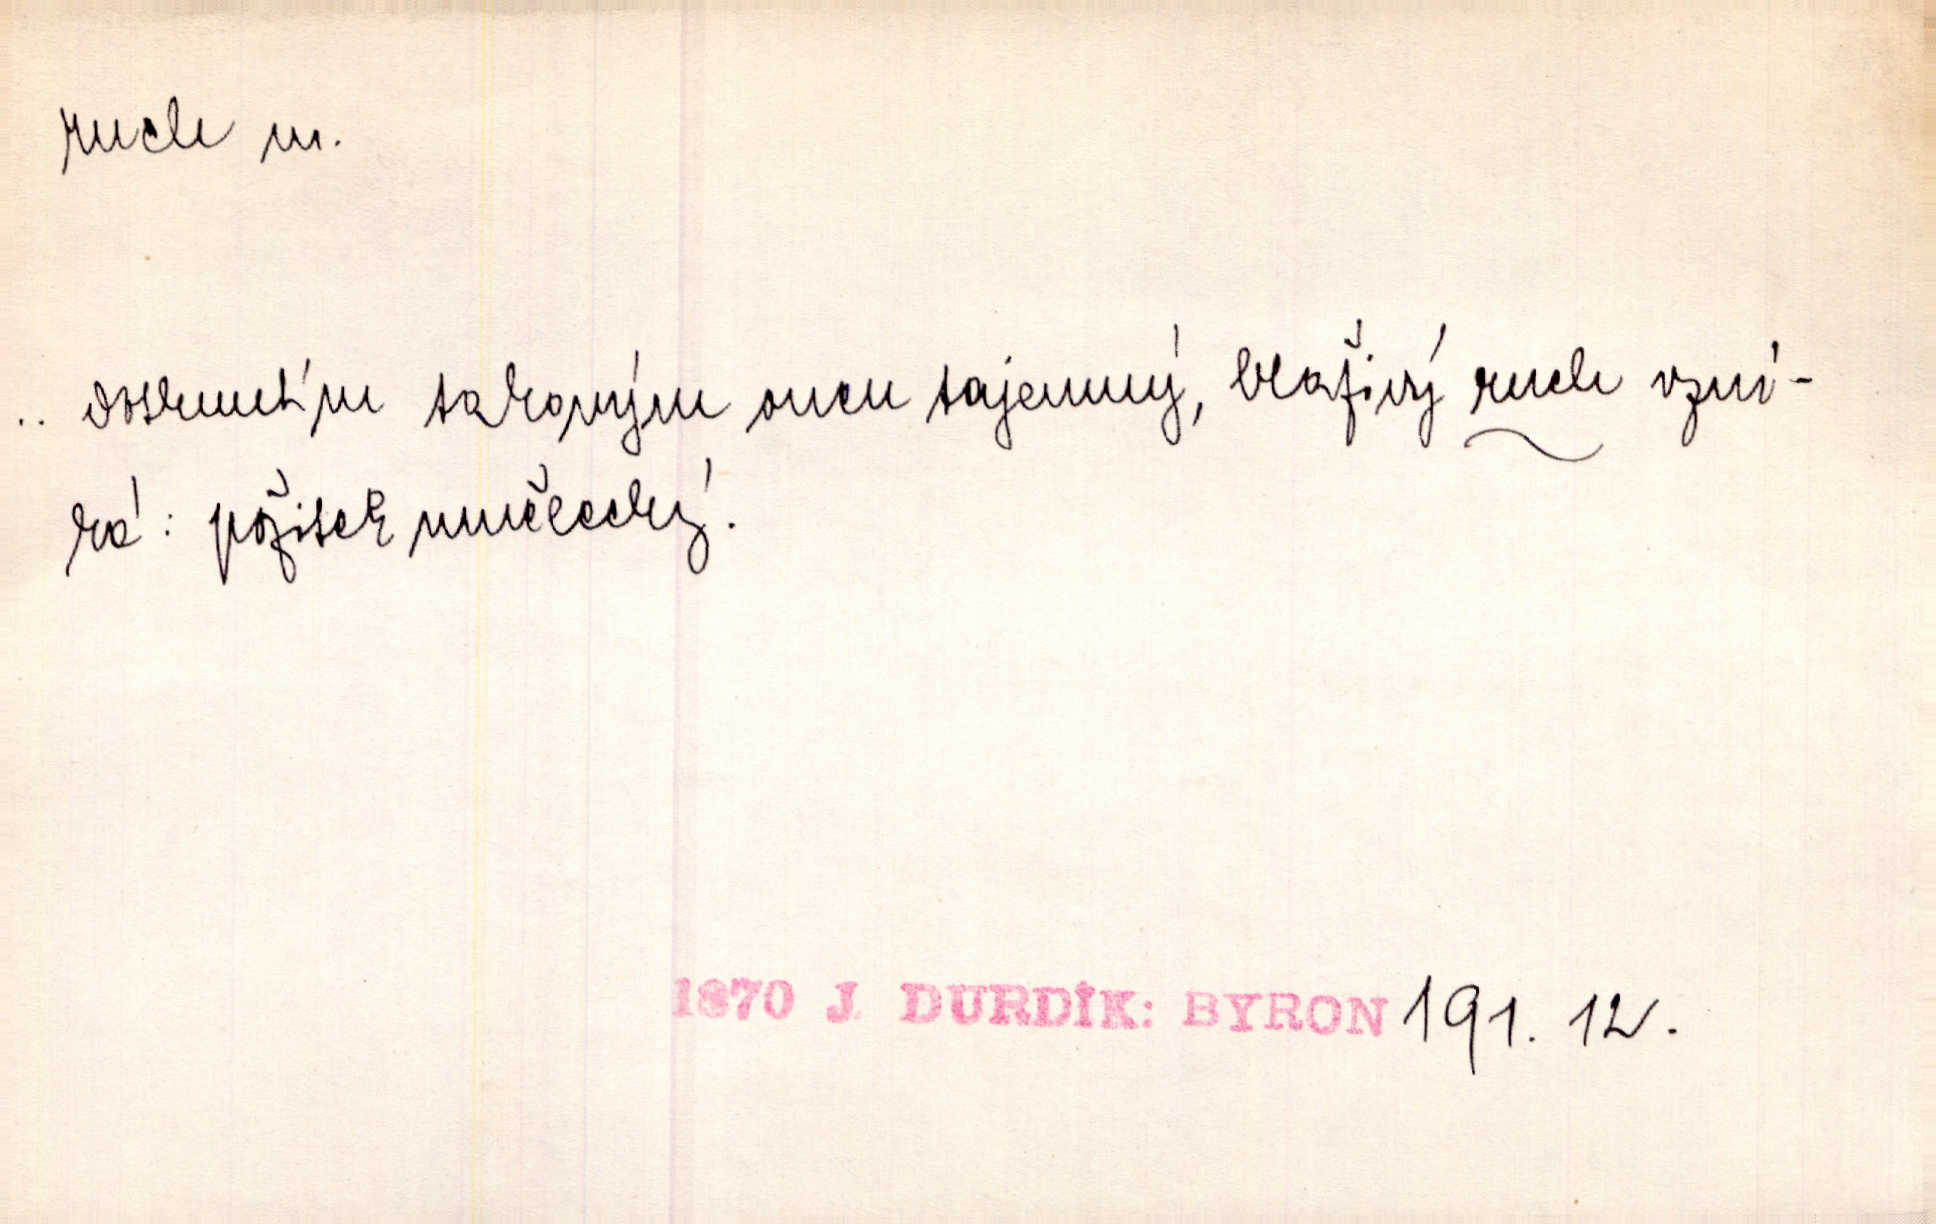 ruch m.
.. dostmutím takovým onen tajemný, blaživý ruch vzni-
ká: požitek umělecký.
1870 J. DURDÍK: BYRON 191. 12.